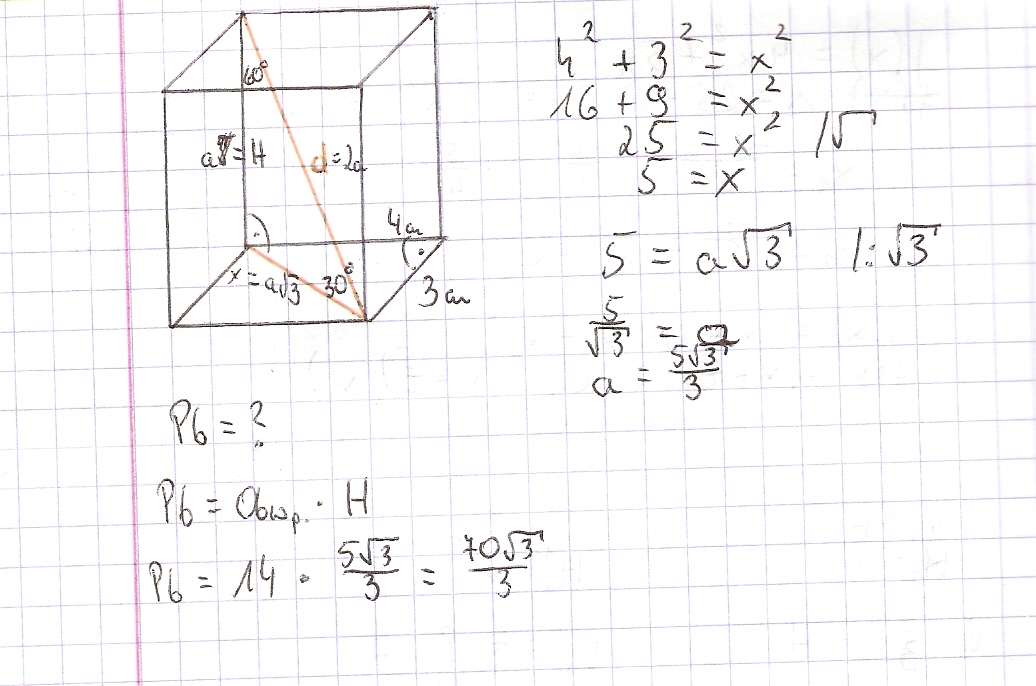 60°
a = H
d = 2a
4 cm
x = a√3
30°
3 cm
4² + 3² = x²
16 + 9 = x²
25 = x² /√
5 = x
5 = a√3 /: √3
5/√3 = a
a = 5√3/3
Pb = ?
Pb = Obwp. · H
Pb = 14 · 5√3/3 = 70√3/3